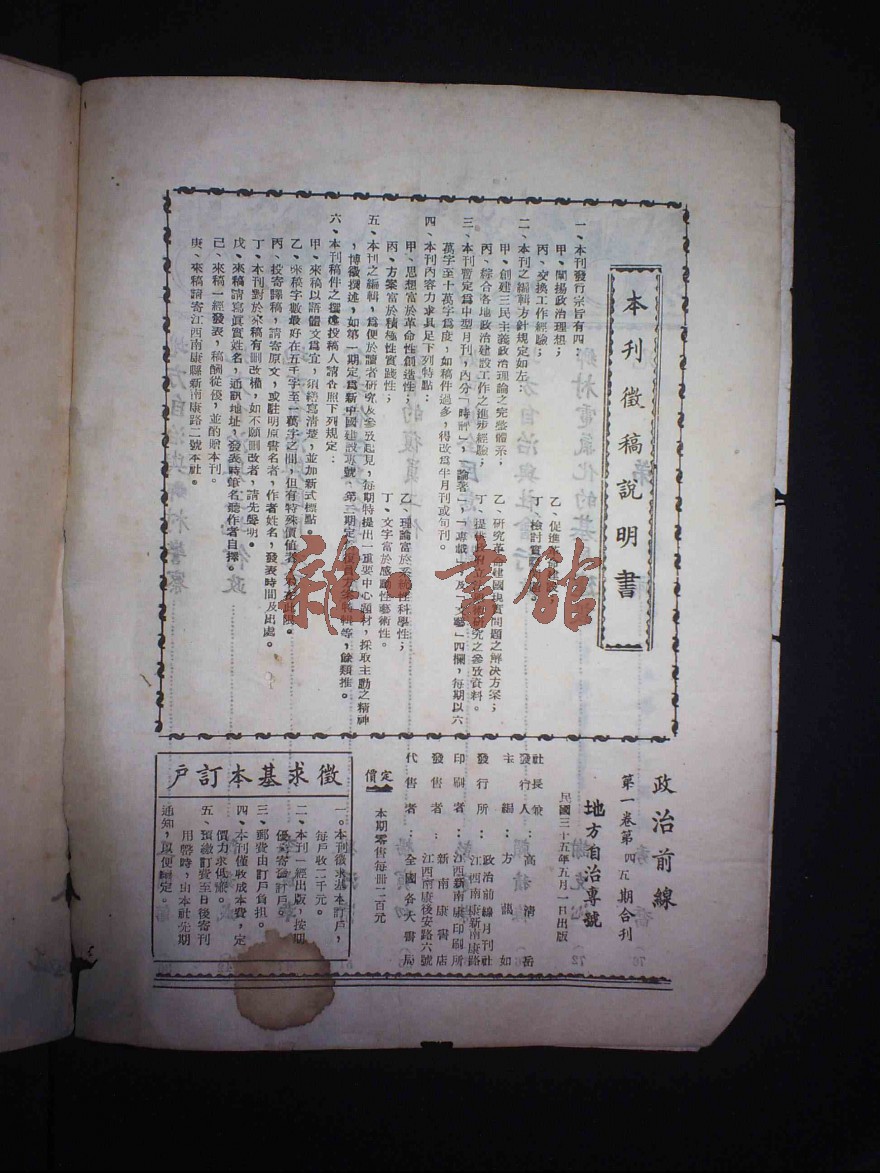 本刊徵稿說明書
一、本刊發行宗旨有四：
甲、闡揚政治理想；
乙、促進
丙、交換工作經驗；
丁、檢討實
二、本刊之編輯方針規定如左：
甲、創建三民主義政治理論之完整體系；
乙、研究革命建國現實問題之解決方案；
丙、綜合各地政治建設工作之進步經驗；
丁、提供 研究之參攷資料。
三、本刊暫定爲中型月刊，內分「時評」，「論著」，「專載」及「文藝」四欄，每期以六
萬字至十萬字爲度，如稿件過多，得改爲半月刊或旬刊。
四、本刊內容力求具足下列特點：
甲、思想富於革命性創造性；
乙、理論富於系統性科學性；
丙、方案富於積極性實踐性；
丁、文字富於感動性藝術性。
五、本刊之編輯，爲便於讀者研究及參攷起見，每期特提出一重要中心題材，採取主動之精神
，博徵撰述，如第一期定爲新中國建設專號，第二期定 等，餘類推。
六、本刊稿件之撰述投稿人請查照下列規定：
甲、來稿以語體文爲宜，須繕寫清楚，並加新式標點。
乙、來稿字數最好在五千字至一萬字之間，但有特殊價值者，不在此限。
丙、投寄譯稿，請寄原文，或註明原書名者，作者姓名，發表時間及出處。
丁、本刊對於來稿有刪改權，如不願刪改者，請先聲明。
戊、來稿請寫眞實姓名，通訊地址，發表時筆名聽作者自擇。
己、來稿一經發表，稿酬從優，並酌贈本刊。
庚、來稿請寄江西南康縣新南康路二號本社。
雜書館
政治前線
第一卷第四五期合刊
地方自治專號
民國三十五年五月一日出版
社長兼
發行人：高清岳
主編：方 如
發行所：政治前線月刊社
江西南康新南康路
印刷者：江西新南康印刷所
發售者：新南康書店
江西南康後安路六號
代售者：全國各大書局
定價
本期零售每冊二百元
徵求基本訂戶
一。本刊徵求基本訂戶，
每戶收二千元。
二、本刊一經出版，按期
優先寄發訂戶。
三、郵費由訂戶負担。
四、本刊僅收成本費，定
價力求低廉。
五、預繳訂費至日後寄刊
用罄時，由本社先期
通知，以便續定。